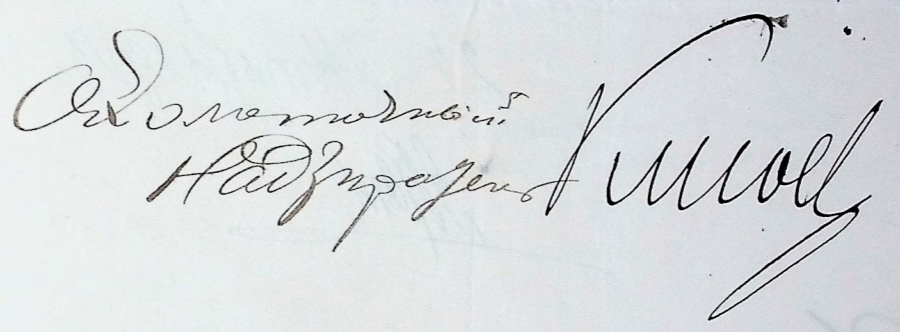 Околоточный
Надзиратель